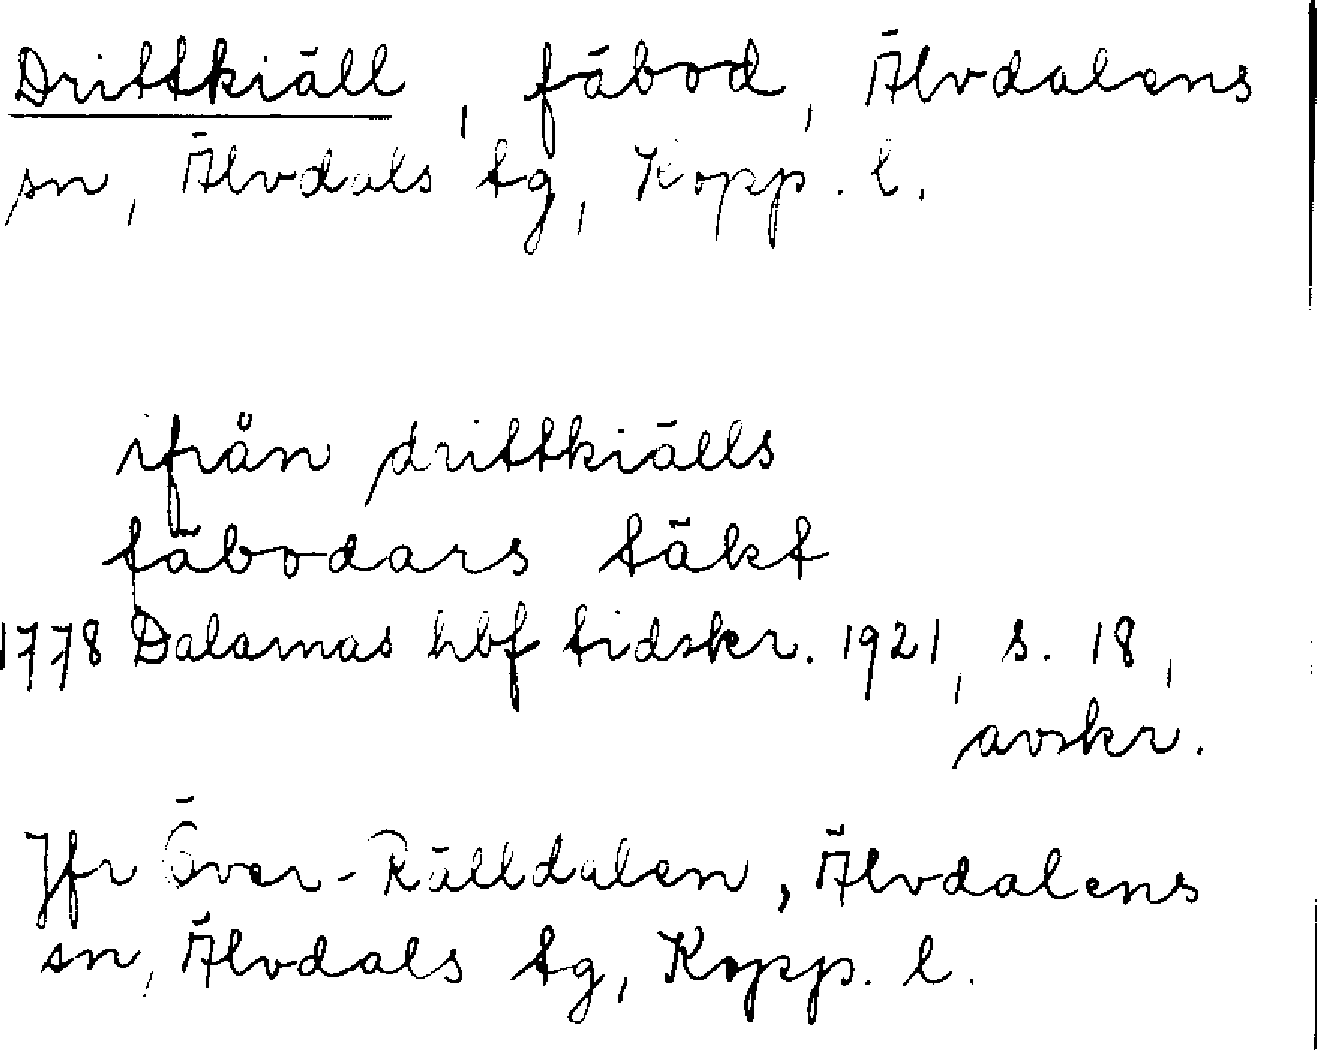 Drittkiäll, fäbod, Älvdalens
sn, Älvdals tg, Kopp. l.
ifrån drittkiälls
fäbodars täkt
1778 Dalarnas hbf tidskr. 1921, s. 18,
avskr.
Jfr Över-Rälldalen, Älvdalens
sn, Älvdals tg, Kopp. l.